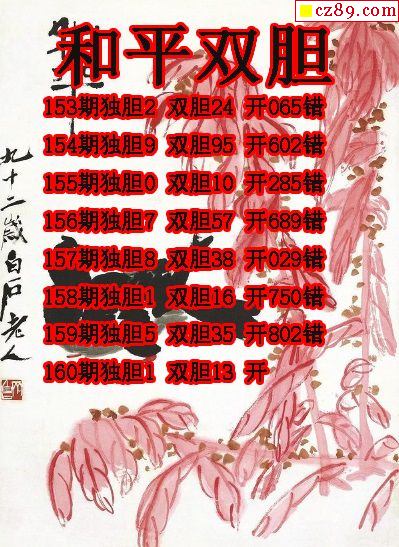 cz89.com
和平双胆
153期独胆2 双胆24 开065错
154期独胆9 双胆95 开602错
155期独胆0 双胆10 开285错
156期独胆7 双胆57 开689错
157期独胆8 双胆38 开029错
158期独胆1 双胆16 开750错
159期独胆5 双胆35 开802错
160期独胆1 双胆13 开
九十二岁白石老人